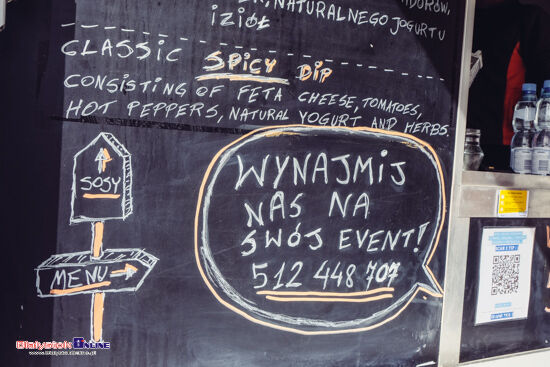 NATURALNEGO JOGURTU
I ZIÓŁ
CLASSIC SPICY DIP
CONSISTING OF FETA CHEESE, TOMATOES,
HOT PEPPERS, NATURAL YOGURT AND HERBS
SOSY
MENU
WYNAJMIJ
NAS NA
SWÓJ EVENT!
512 448 707
Białystok ONLINE